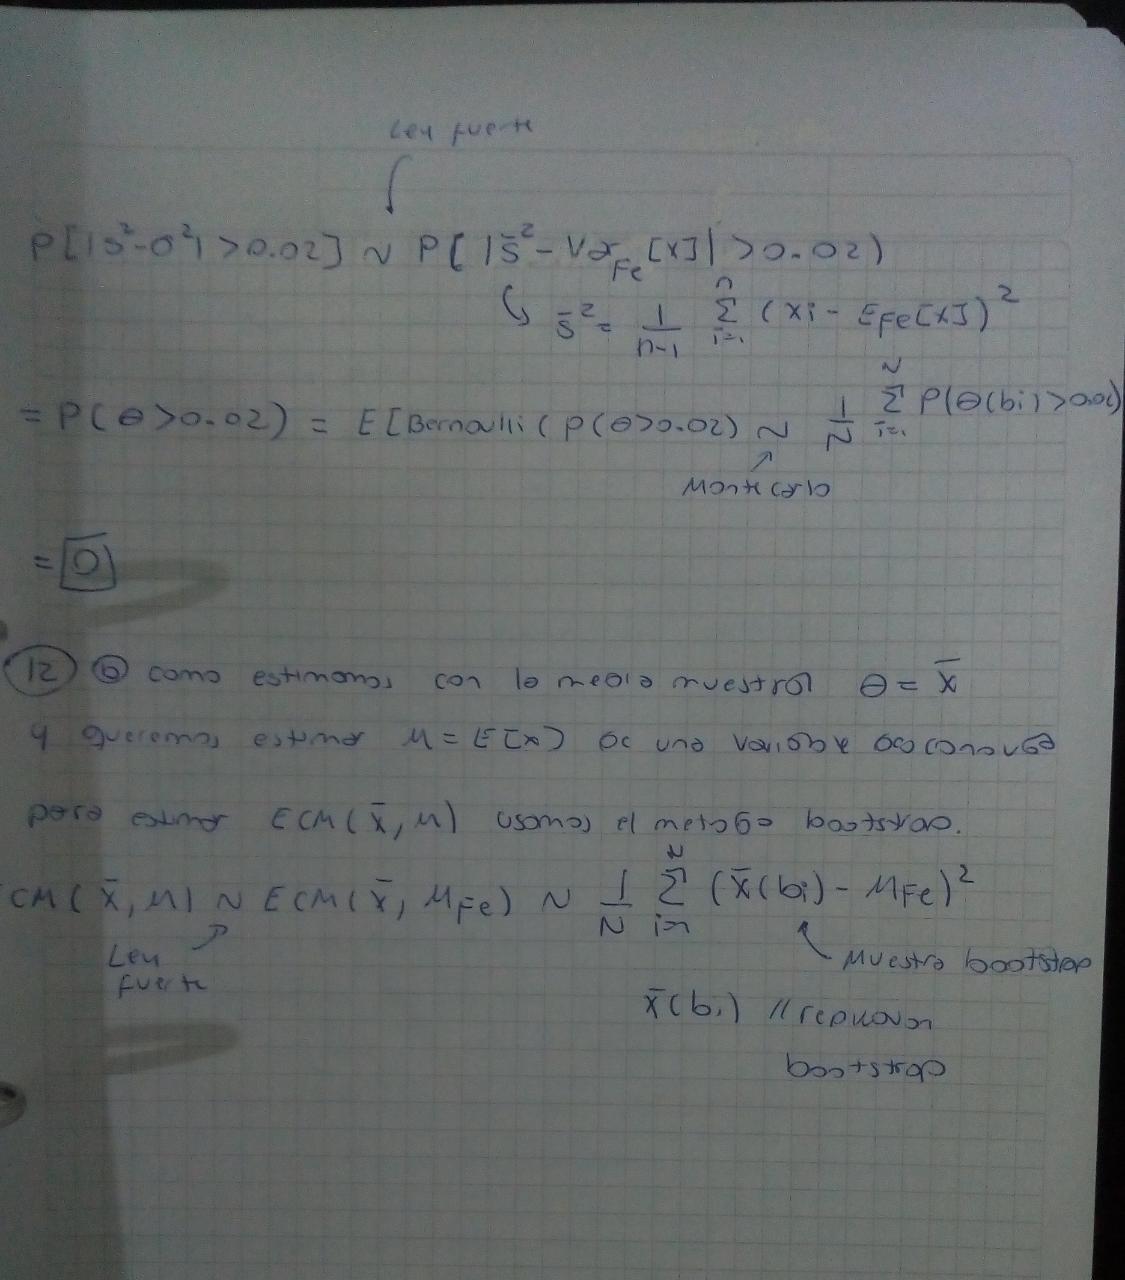 Ley fuerte
P[|S²-σ²| > 0.02] ~ P[ |S̄² - Var_Fe[X]| > 0.02)
S̄² = 1/(n-1) Σ_{i=1}^{n} (Xi - E_Fe[X])²
= P(θ > 0.02) = E[Bernoulli(P(θ>0.02) ~ 1/N Σ_{i=1}^{N} P(θ(bi) > 0.02)
Monte carlo
= 0
12 a como estimamos con la media muestral θ = X̄
y queremos estimar μ = E[X] de una variable desconocida
para estimar ECM(X̄, μ) usamos el metodo bootstrap.
CM(X̄, μ) ~ ECM(X̄, μ_Fe) ~ 1/N Σ_{i=1}^{N} (X̄(bi) - μ_Fe)²
Ley fuerte
Muestra bootstrap
X̄(bi) //
bootstrap